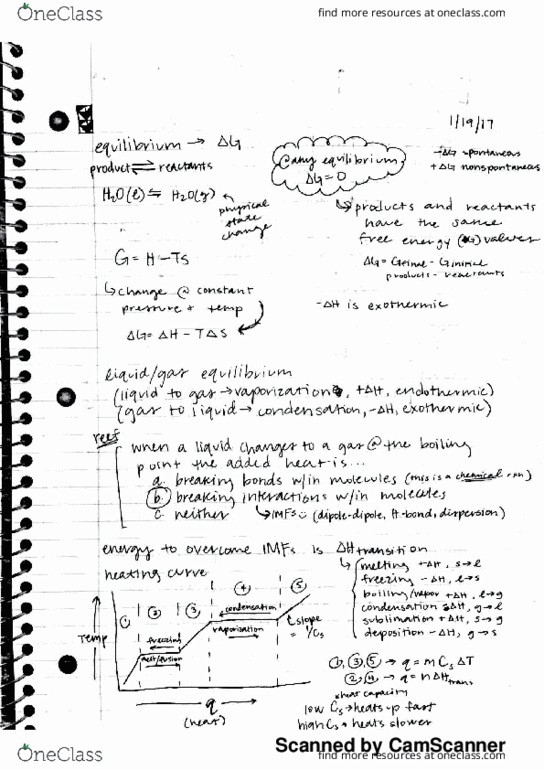 OneClass
find more resources at oneclass.com
1/19/17
equilibrium → ΔG
product ⇌ reactants
H₂O(l) ⇌ H₂O(g)
physical
state
change
@any equilibrium
ΔG=0
-ΔG spontaneous
+ΔG nonspontaneous
products and reactants
have the same
free energy (G) values
ΔG = Gfinal - Ginitial
products - reactants
G = H - TS
↳ change @ constant
pressure + temp
ΔG = ΔH - TΔS
-ΔH is exothermic
liquid/gas equilibrium
(liquid to gas → vaporization, +ΔH, endothermic)
(gas to liquid → condensation, -ΔH, exothermic)
reef
when a liquid changes to a gas @ the boiling
point the added heat is...
a. breaking bonds w/in molecules (this is a chemical rxn)
b. breaking interactions w/in molecules
c. neither ↳ IMFs (dipole-dipole, H-bond, dispersion)
energy to overcome IMFs is ΔH transition
↳ melting +ΔH, s→l
freezing -ΔH, l→s
boiling/vapor +ΔH, l→g
condensation -ΔH, g→l
sublimation +ΔH, s→g
deposition -ΔH, g→s
heating curve
① ② ③ ④ ⑤
condensation
vaporization
freezing
melt/fusion
slope
= 1/Cs
Temp
q
(heat)
①,③,⑤ → q = m Cs ΔT
②,④ → q = n ΔHtrans
heat capacity
low Cs → heats up fast
high Cs → heats slower
Scanned by CamScanner
OneClass
find more resources at oneclass.com